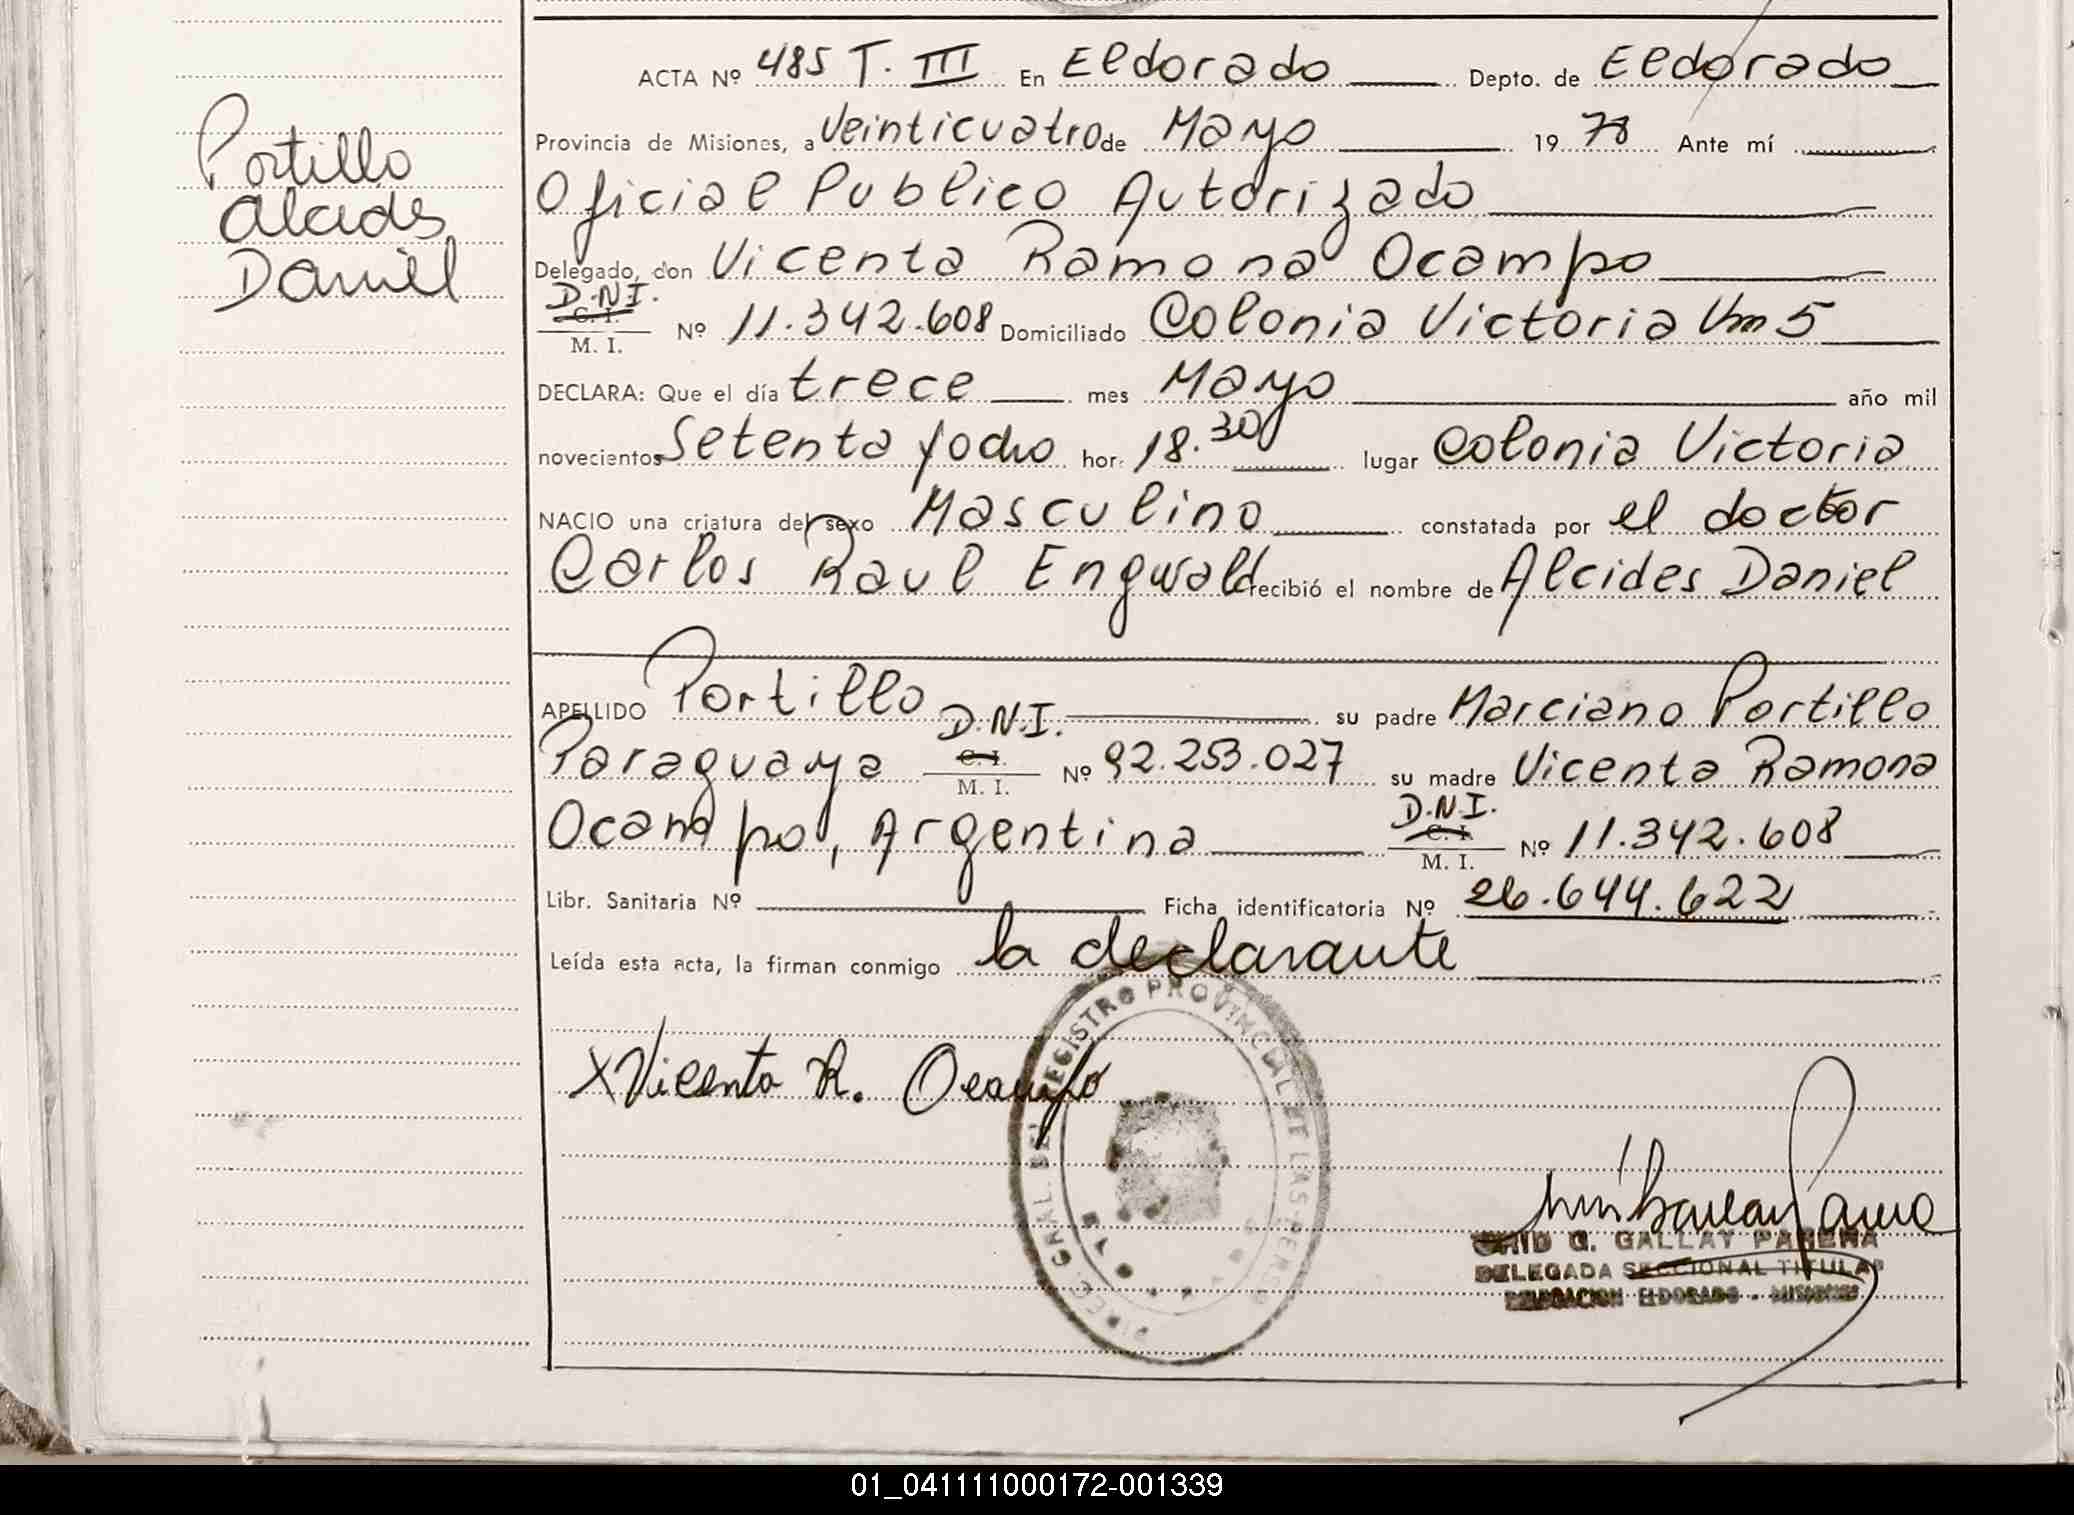 Portillo
Alcides
Daniel
ACTA Nº 485 T. III En Eldorado Depto. de Eldorado
Provincia de Misiones, a Veinticuatro de Mayo 19 78 Ante mí
Oficial Publico Autorizado
Delegado, don Vicenta Ramona Ocampo
D.N.I.
C. I.
M. I. Nº 11.342.608 Domiciliado Colonia Victoria Km 5
DECLARA: Que el día trece mes Mayo año mil
novecientos Setenta y ocho hor. 18.30 lugar Colonia Victoria
NACIO una criatura del sexo Masculino constatada por el doctor
Carlos Raul Engwald recibió el nombre de Alcides Daniel
APELLIDO Portillo su padre Marciano Portillo
D.N.I.
Paraguaya C. I. Nº 92.253.027 su madre Vicenta Ramona
M. I.
D.N.I.
Ocampo, Argentina C. I. Nº 11.342.608
M. I.
Libr. Sanitaria Nº Ficha identificatoria Nº 26.644.622
Leída esta acta, la firman conmigo la declarante
X Vicenta R. Ocampo
DIREC. GRAL. DEL REGISTRO PROVINCIAL DE LAS PERSO
G. GALLAY PARERA
DELEGADA SECCIONAL TITULAR
DELEGACION ELDORADO - MISIONES
01_041111000172-001339